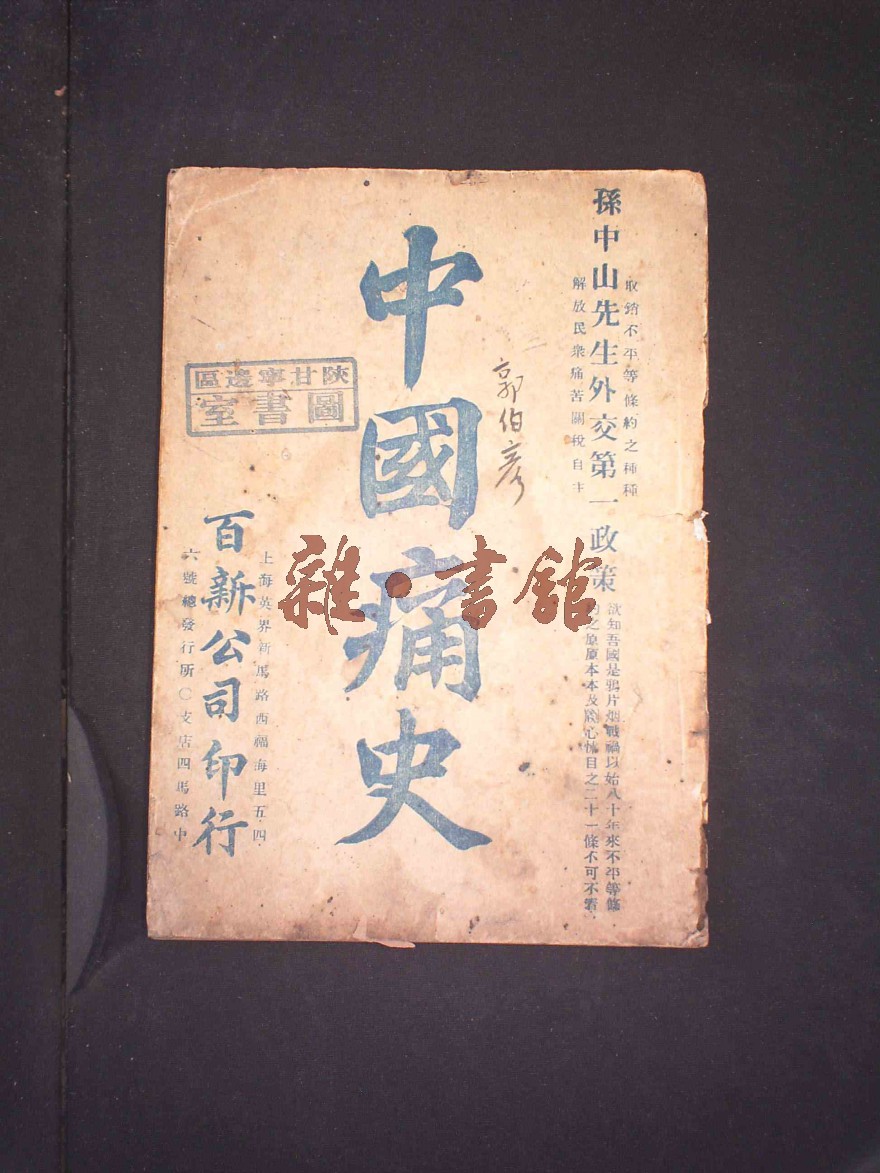 孫中山先生外交第一政策
取銷不平等條約之種種
解放民衆痛苦關稅自主
欲知吾國是鴉片烟戰禍以始八十年來不平等條
約之原原本本及觸心怵目之二十一條不可不看
郭伯彥
中國痛史
陝甘寧邊區
圖書室
上海英界新馬路西福海里五四
六號總發行所〇支店四馬路中
百新公司印行
雜·書館